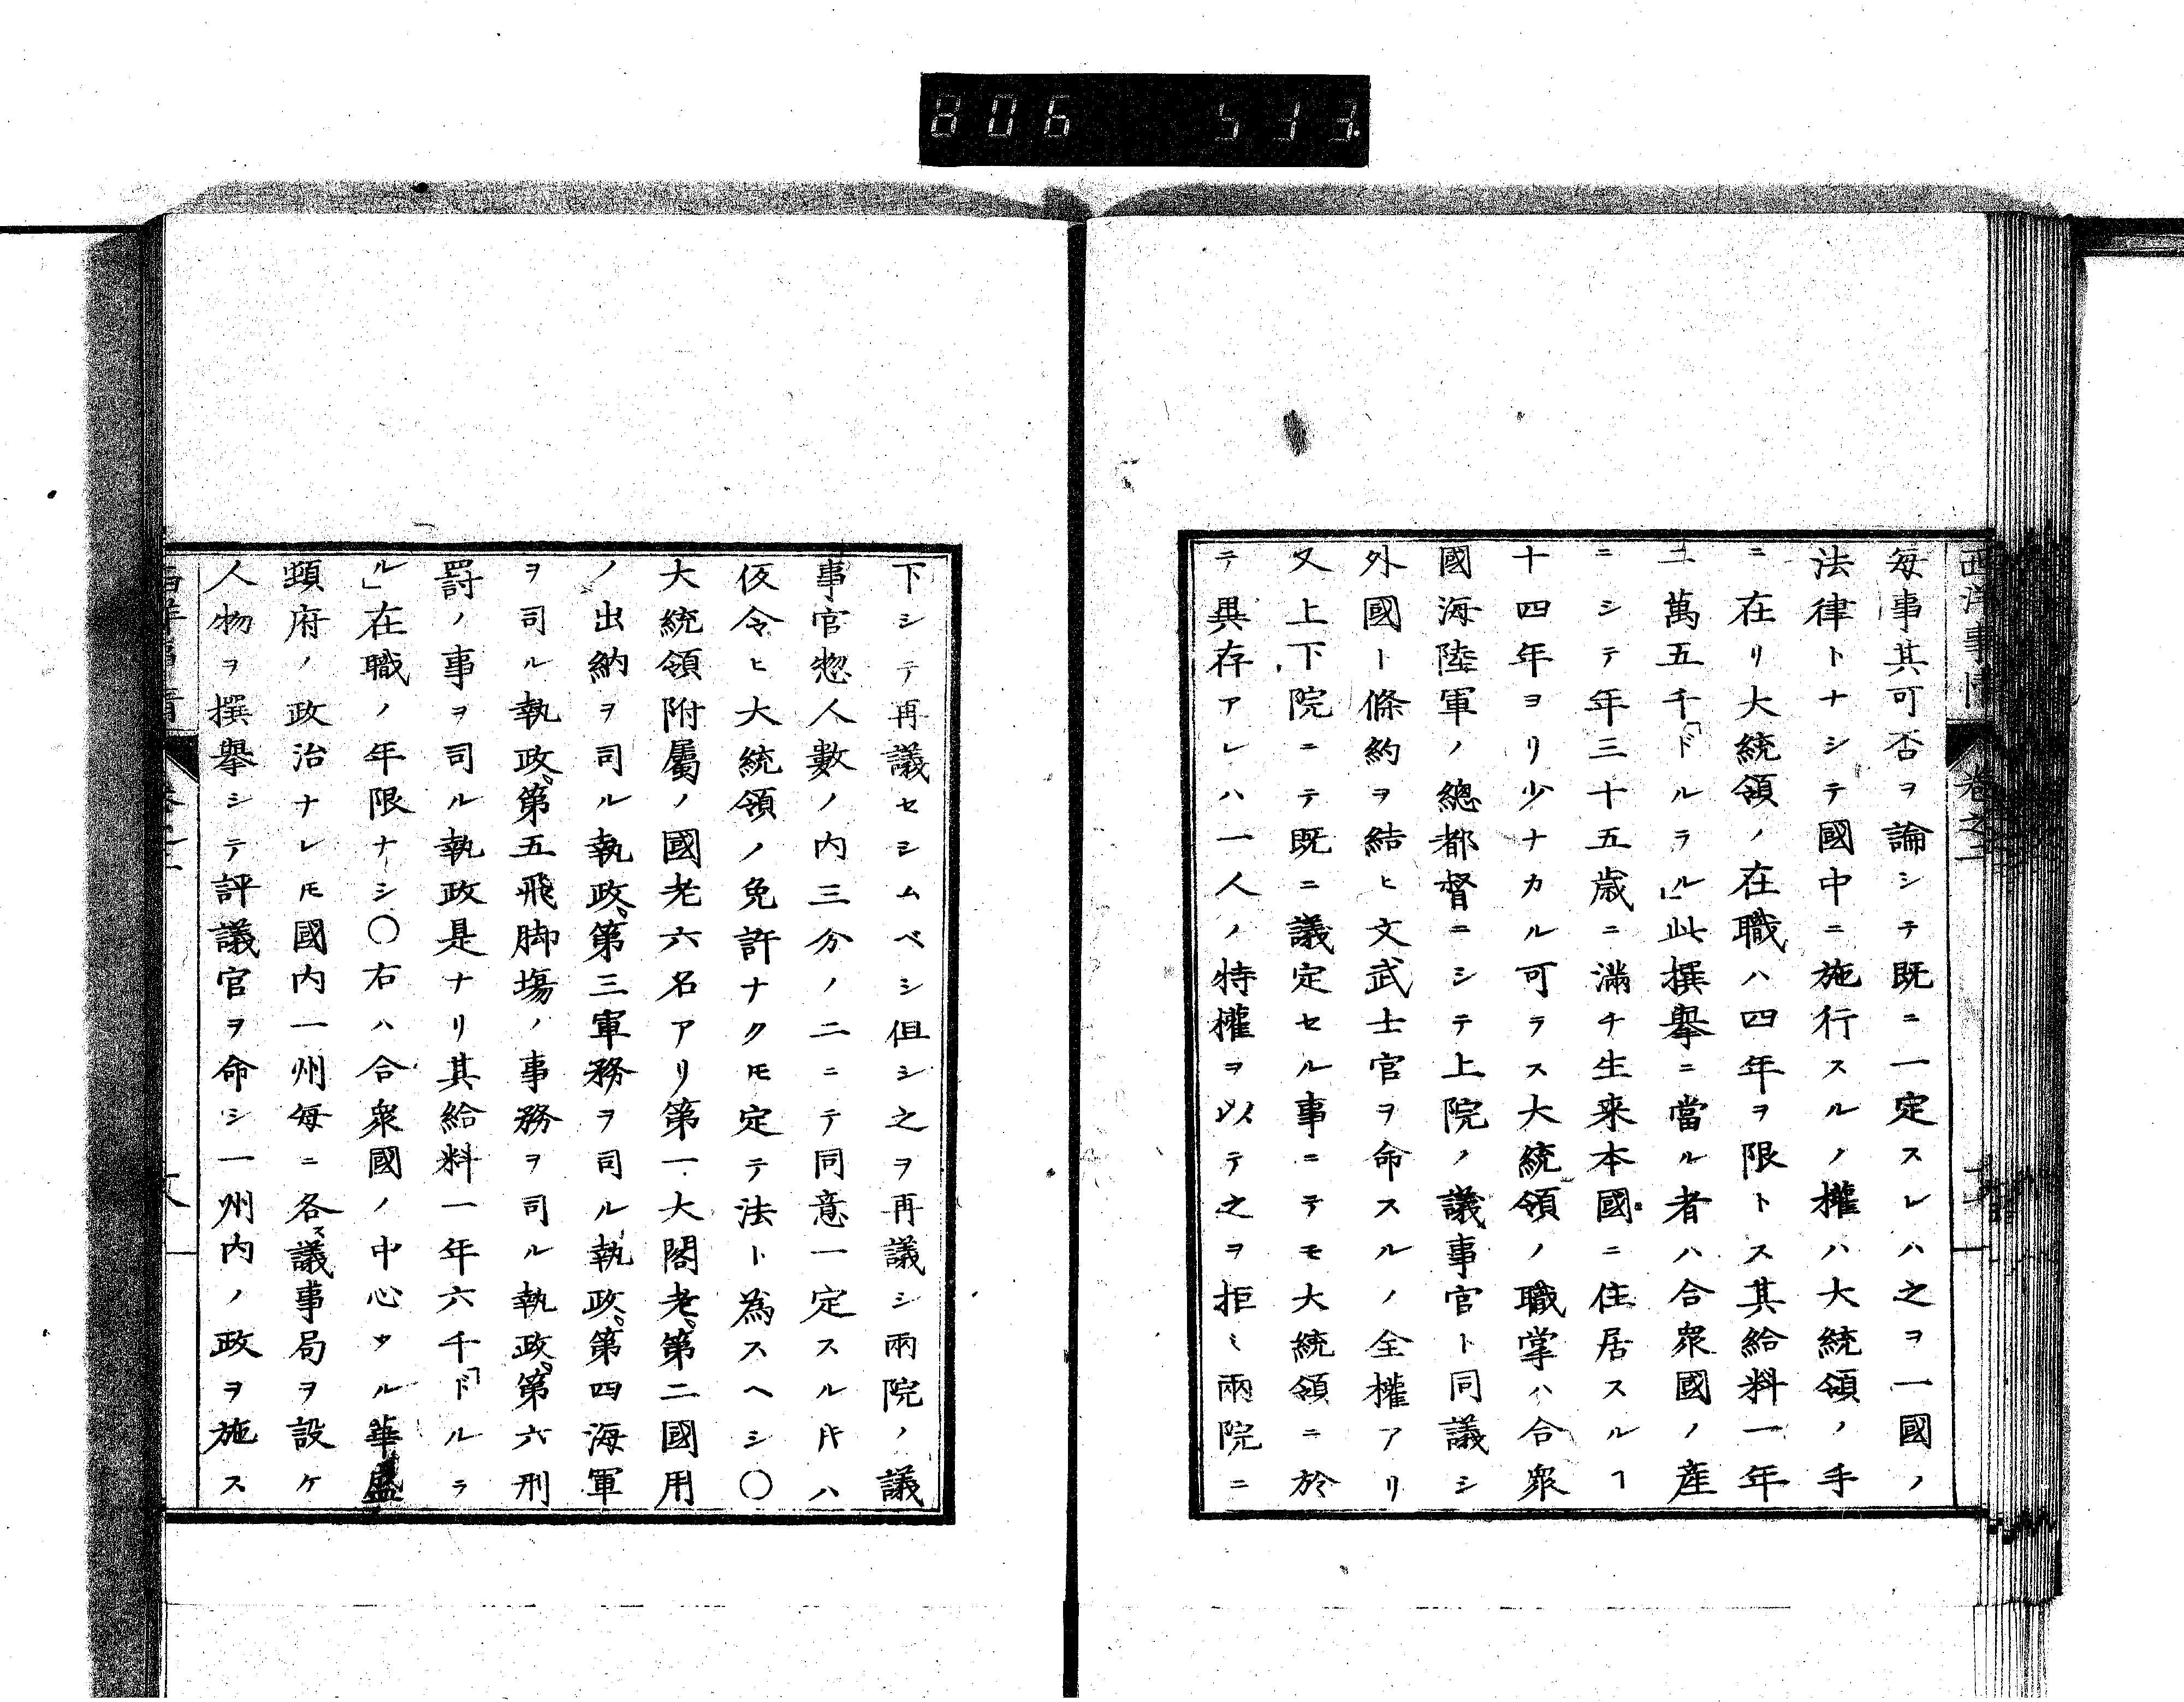 806 513.
西洋事情 卷之二
每事其可否ヲ論シテ既ニ一定スレハ之ヲ一國ノ
法律トナシテ國中ニ施行スルノ權ハ大統領ノ手
ニ在リ大統領ノ在職ハ四年ヲ限トス其給料一年
二萬五千「ドルラル」此撰擧ニ當ル者ハ合衆國ノ產
ニシテ年三十五歲ニ滿チ生来本國ニ住居スルヿ
十四年ヨリ少ナカル可ラス大統領ノ職掌ハ合衆
國海陸軍ノ總都督ニシテ上院ノ議事官ト同議シ
外國ト條約ヲ結ヒ文武士官ヲ命スルノ全權アリ
又上下院ニテ既ニ議定セル事ニテモ大統領ニ於
テ異存アレハ一人ノ特權ヲ以テ之ヲ拒ミ兩院ニ
下シテ再議セシムベシ但シ之ヲ再議シ兩院ノ議
事官惣人數ノ内三分ノ二ニテ同意一定スル𪜈ハ
仮令ヒ大統領ノ免許ナク𪜈定テ法ト為スヘシ〇
大統領附屬ノ國老六名アリ第一大閣老。第二國用
ノ出納ヲ司ル執政。第三軍務ヲ司ル執政。第四海軍
ヲ司ル執政。第五飛脚塲ノ事務ヲ司ル執政。第六刑
罰ノ事ヲ司ル執政是ナリ其給料一年六千「ドルラ
ル」在職ノ年限ナシ〇右ハ合衆國ノ中心タル華盛
頓府ノ政治ナレ𪜈國内一州每ニ各々議事局ヲ設ケ
人物ヲ撰擧シテ評議官ヲ命シ一州内ノ政ヲ施ス